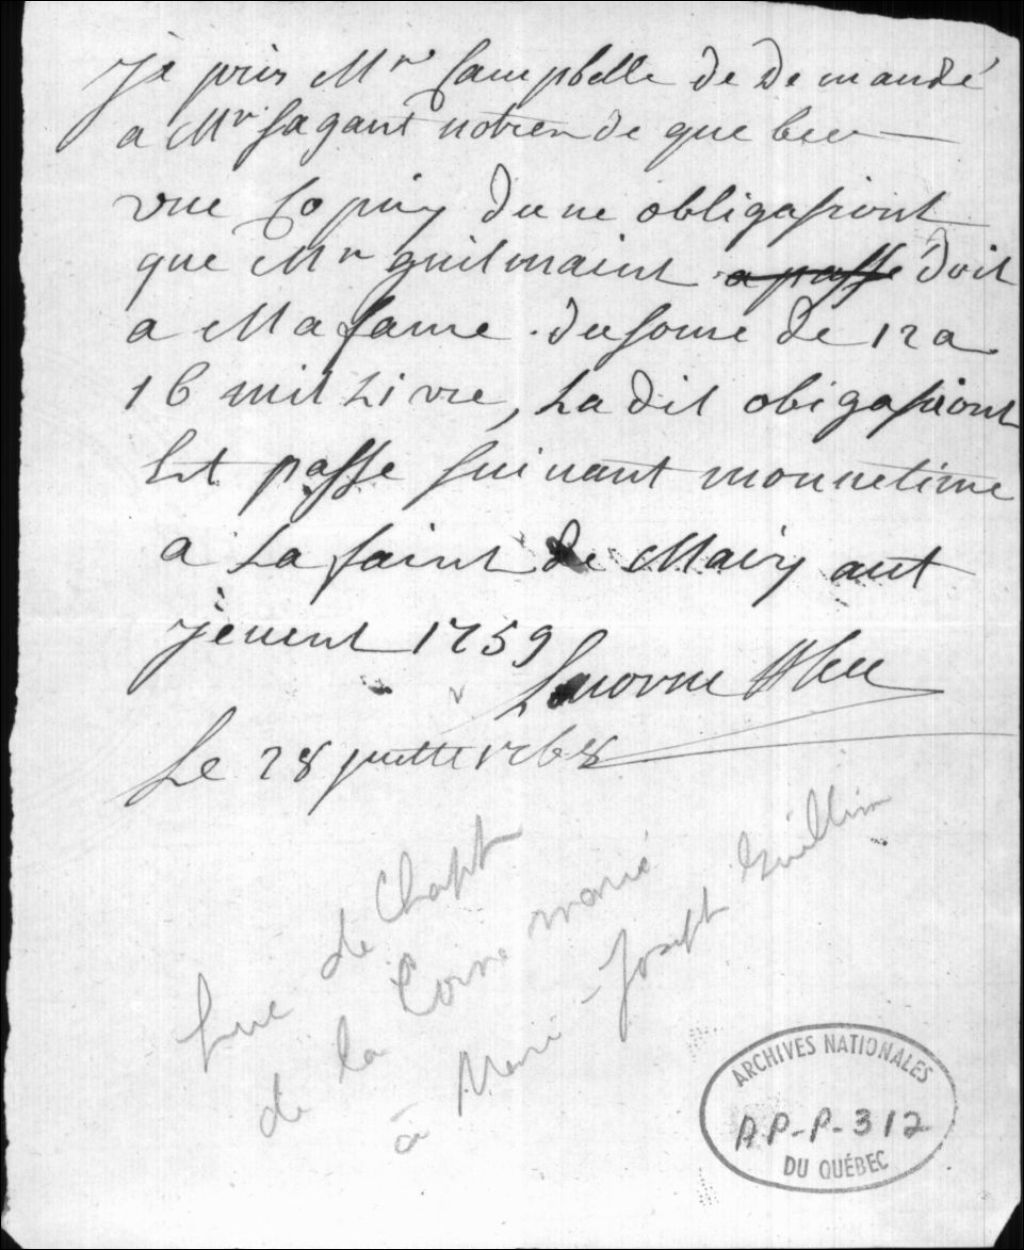 Je pris Mr Campbelle de demandé
a Mr sagant notier de quebec
vne Copiey dune obligasiont
que Mr guilmaint a passe doit
a Ma fame . du some de 12 a
16 mil Livre, La dit obigasiont
Et passe suivant monnetime
a La saint de Mairy ant
jenuent 1759
Lacorne St luc
Le 28 juillte 1768
Luc de Chapt
de la Corne marié
à Marie-Joseph Guillim
ARCHIVES NATIONALES
A.P-P-312
DU QUÉBEC